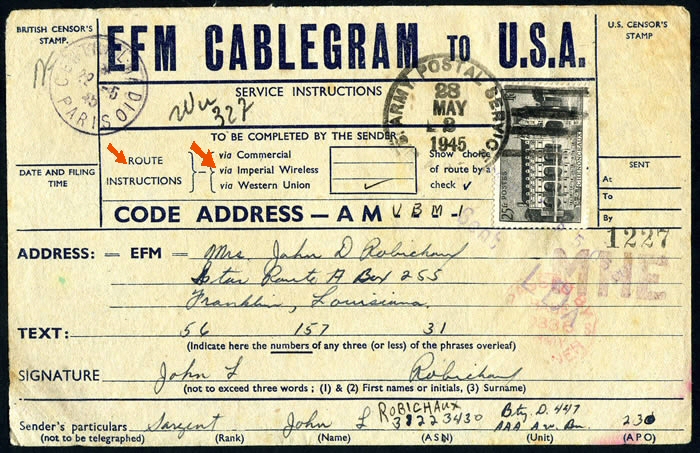 BRITISH CENSOR'S STAMP.
EFM CABLEGRAM TO U.S.A.
U.S. CENSOR'S STAMP
SERVICE INSTRUCTIONS
PARIS
U.S. ARMY POSTAL SERVICE
28
MAY
2
1945
25c POSTES
327
TO BE COMPLETED BY THE SENDER
ROUTE INSTRUCTIONS
via Commercial
via Imperial Wireless
via Western Union ✓
Show choice
of route by a
check ✓
DATE AND FILING TIME
SENT
At
To
By
CODE ADDRESS — AM VBM-1
1227
ADDRESS: — EFM — Mrs. John D Robichaux
Star Route A Box 255
Franklin, Louisiana.
MHE
TEXT: 56 157 31
(Indicate here the numbers of any three (or less) of the phrases overleaf)
SIGNATURE John L Robichaux
(not to exceed three words ; (1) & (2) First names or initials, (3) Surname)
Sender's particulars Sargent John L ROBICHAUX 38223430 Bty. D. 447 AAA A.W. Bn. 230
(not to be telegraphed) (Rank) (Name) (ASN) (Unit) (APO)